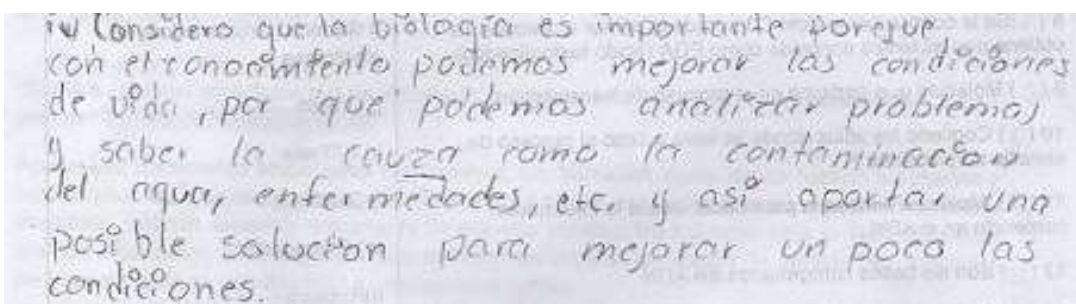 iv Considero que la biologia es importante poreque
con el conocimiento podemos mejorar las condiciones
de vida, por que podemos analizar problemas
y saber la cauza como la contaminacion
del agua, enfermedades, etc. y asi aportar una
posible solucion para mejorar un poco las
condiciones.